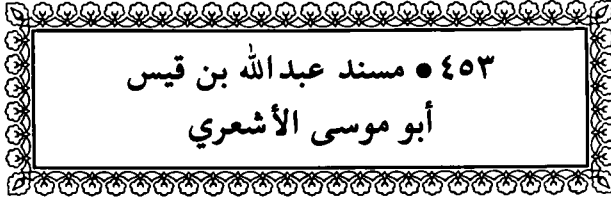 ٤٥٣ ● مسند عبدالله بن قيس
أبو موسى الأشعري